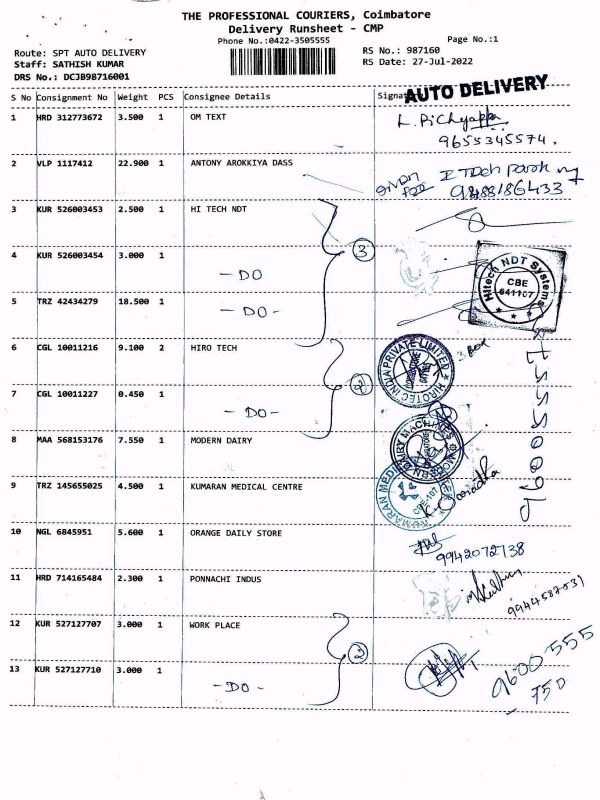 THE PROFESSIONAL COURIERS, Coimbatore
Delivery Runsheet - CMP
Phone No.:0422-3505555
Page No.:1
Route: SPT AUTO DELIVERY
RS No.: 987160
Staff: SATHISH KUMAR
RS Date: 27-Jul-2022
DRS No.: DCJB98716001
AUTO DELIVERY
S No Consignment No Weight PCS Consignee Details Signature
1 HRD 312773672 3.500 1 OM TEXT
L. Pichyappa
9655345574.
2 VLP 1117412 22.900 1 ANTONY AROKKIYA DASS
9488186433
3 KUR 526003453 2.500 1 HI TECH NDT
3
4 KUR 526003454 3.000 1 - DO
Hitech NDT Systems
CBE
641107
5 TRZ 42434279 18.500 1 - DO -
6 CGL 10011216 9.100 2 HIRO TECH
HIROTEC INDIA PRIVATE LIMITED
3 Box
2
7 CGL 10011227 0.450 1 - DO -
8 MAA 568153176 7.550 1 MODERN DAIRY
MODERN DAIRY MACHINES
9 TRZ 145655025 4.500 1 KUMARAN MEDICAL CENTRE
KUMARAN MEDI
CBE-107
10 NGL 6845951 5.600 1 ORANGE DAILY STORE
9942072738
11 HRD 714165484 2.300 1 PONNACHI INDUS
9944587531
12 KUR 527127707 3.000 1 WORK PLACE
2
9600555
750
13 KUR 527127710 3.000 1 - DO -